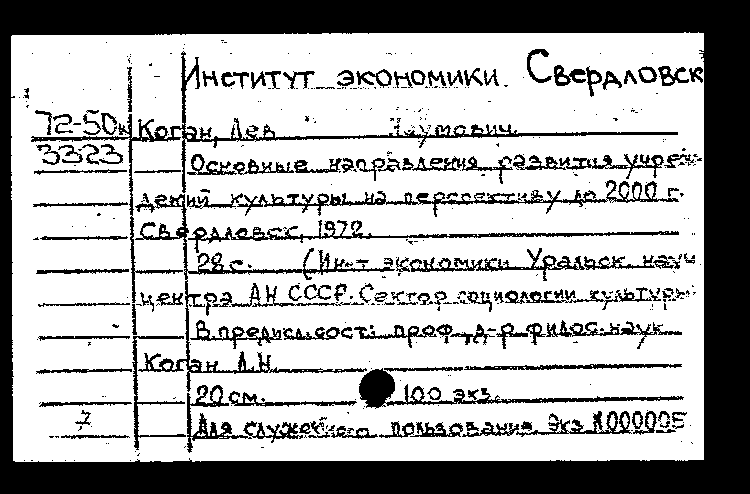 Институт экономики Свердловск
72-50к Коган, Лев Наумович.
3323 Основные направления развития учреж-
дений культуры на перспективу до 2000 г.
Свердловск, 1972.
28 с. (Ин-т экономики Уральск. науч
центра АН СССР. Сектор социологии культуры
В предисл. сост: проф., д-р филос. наук
Коган Л.Н.
20 см. 100 экз.
7 Для служебного пользования. Экз №000005